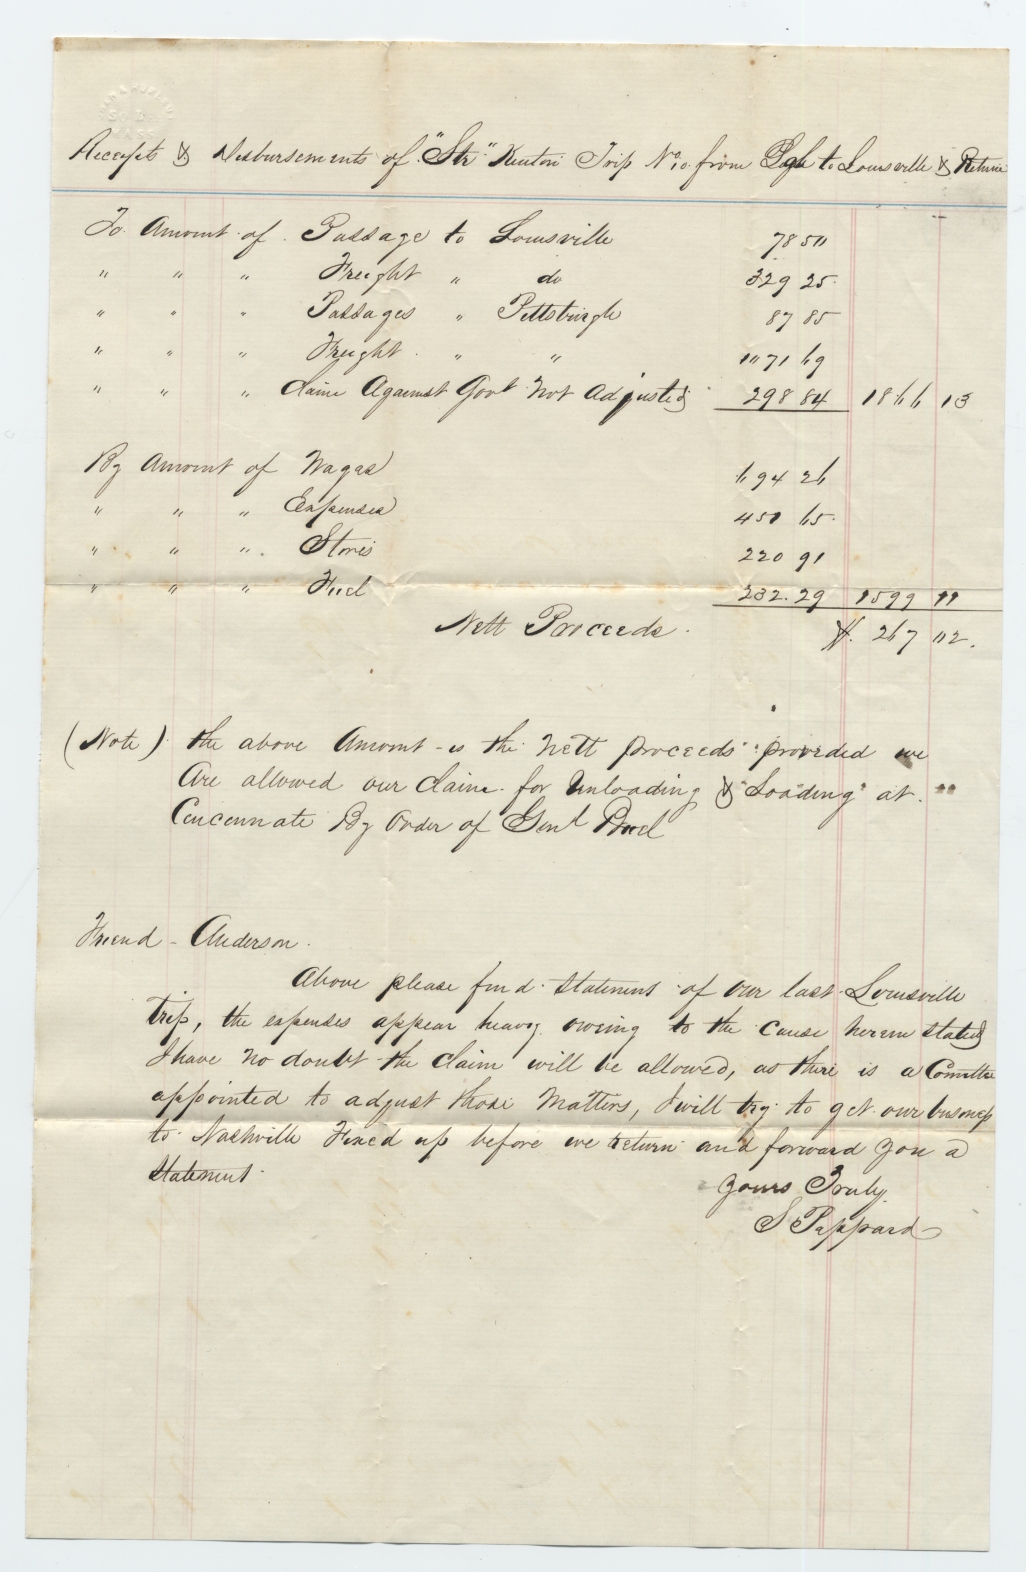 Receipts & Disbursements of "Str" Kenton Trip No 10 from Pgh to Louisville & Return
To Amount of Passage to Louisville 78 50
" " " Freight " do 329 25
" " " Passages " Pittsburgh 87 85
" " " Freight " " 1071 69
" " " Claim Against Govt Not Adjusted 298 84 1866 13
By Amount of Wages 694 26
" " " Expenses 451 65
" " " Stores 220 91
" " " Fuel 232.29 1599 11
Nett Proceeds. $. 267 02.
(Note) the above Amount is the Nett proceeds provided we
Are allowed our claim for Unloading & "Loading" at
Cincennate By Order of Genl Buel
Friend Anderson.
Above please find statement of our last Louisville
trip, the expenses appear heavy owing to the cause herein stated
I have no doubt the claim will be allowed, as there is a Committe
appointed to adjust those Matters, I will try to get our business
to Nashville Fixed up before we return and forward you a
Statement.
Yours Truly.
S Peppard